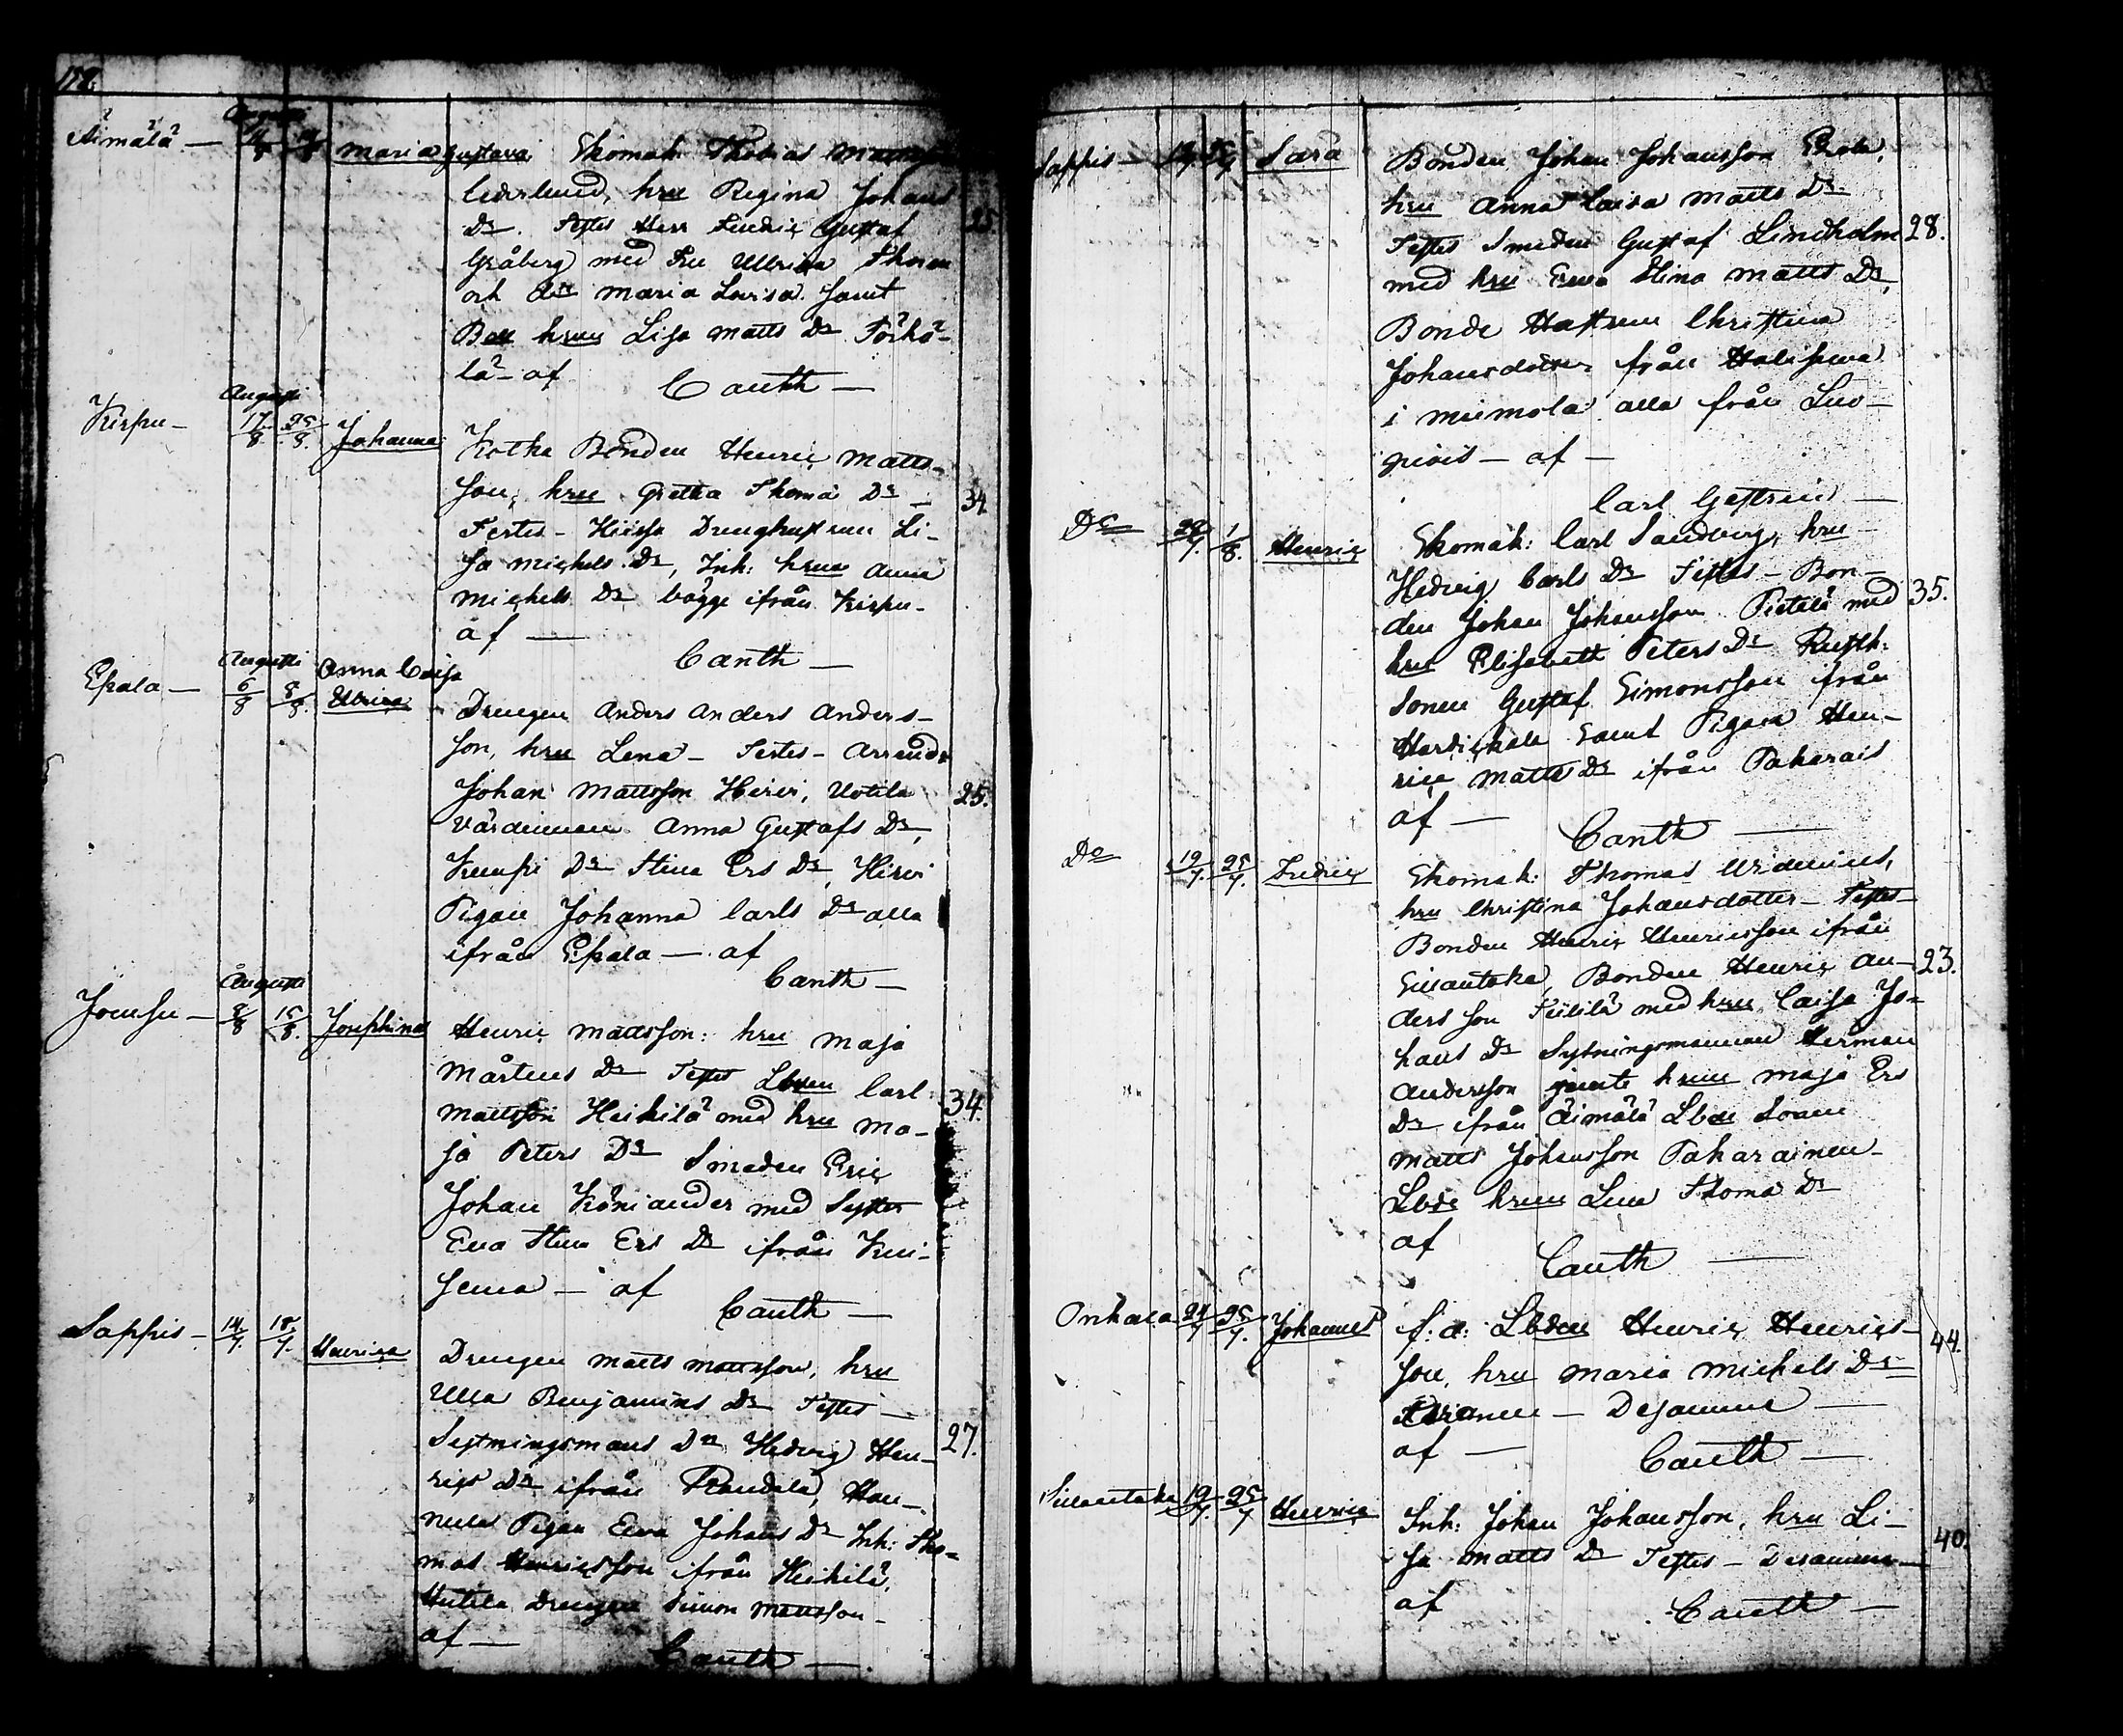 Äimälä —
Augusti
Maria Gustava
Skomak: Thomas Mattsson
Cederlund, hru Regina Johans
Dr. Testes Herr Fredric Gustaf
Gråberg med Fru Ullrica Thoren
och dr Maria Lovisa Samt
hrun Lisa Matts Dr
lä — af
Canth —
25
Augusti
17/8 25/8
Johanna
Bonden Henric Matts-
son, hru Gretha Thomæ Dr —
Testes — Drenghustrun Li-
sa Michels Dr, Inh: hrun Anna
Michels Dr bägge ifrån
af —
Canth —
34
Epala —
Augusti
6/8 8/8
Anna Caisa
Ulrica
Drengen Anders Anders Anders-
son, hru Lena — Testes — Arrend:
Johan Mattsson Hirvi, Uotila
Värdinnan Anna Gustafs Dr,
Dr Stina Ers Dr, Hirvi
Pigan Johanna Carls Dr alla
ifrån Epala — af
Canth —
25.
Joensu —
Augusti
8/8 15/8
Josephina
Henric Mattsson: hru Maja
Mårtens Dr Testes Lbden Carl
Mattsson Heikilä med hru Ma-
ja Peters Dr Smeden Eric
Johan med Syster
Eva Stina Ers Dr ifrån
— af
Canth —
34.
Sappis —
14/7 18/7
Henrica
Drengen Matts Mattsson, hru
Ulla Benjamins Dr Testes —
Sytningsmans Dr Hedvig Hen-
rics Dr ifrån Han-
nula Pigan Eva Johans Dr Inh: Tho-
mas Henricsson ifrån Heikilä,
Drengen Simon Mattsson —
af —
Canth —
27.
Sappis —
Sara
Bonden Johan Johansson
hru Anna Caisa Matts Dr
Testes Smeden Gustaf Lindholm
med hru Eva Stina Matts Dr,
Bonde Hustrun Christina
Johansdotter från
i alla från
— af —
Carl Gestrin —
28.
Do
29/7 1/8.
Henric
Skomak: Carl Sandberg, hru
Hedvig Carls Dr Testes — Bon-
den Johan Johansson Pietilä med
hru Elisabeth Peters Dr Rusth:
Sonen Gustaf Simonsson ifrån
Samt Pigan Hen-
rica Matts Dr ifrån Paharais
af —
Canth —
35.
Do
19/7. 25/7.
Fredric
Skomak: Thomas
hru Christina Johansdotter — Testes —
Bonden Henric Henricsson ifrån
Sillantaka, Bonden Henric An-
dersson med hru Caisa Jo-
hans Dr Sytningsmannen Herman
Andersson jemte hrun Maja Ers
Dr ifrån Äimälä Lbde Sonen
Matts Johansson Paharainen —
Lbde hrun Lena Thomæ Dr
af
Canth —
23.
Onkala
24/7 25/7.
Johannes
f: d: Lbden Henric Henrics-
son, hru Maria Michels Dr
— Desamme —
af —
Canth —
44.
Sillantaka
19/7. 25/7
Henrica
Inh: Johan Johansson, hru Li-
sa Matts Dr Testes — Desamme —
af
Canth —
40.